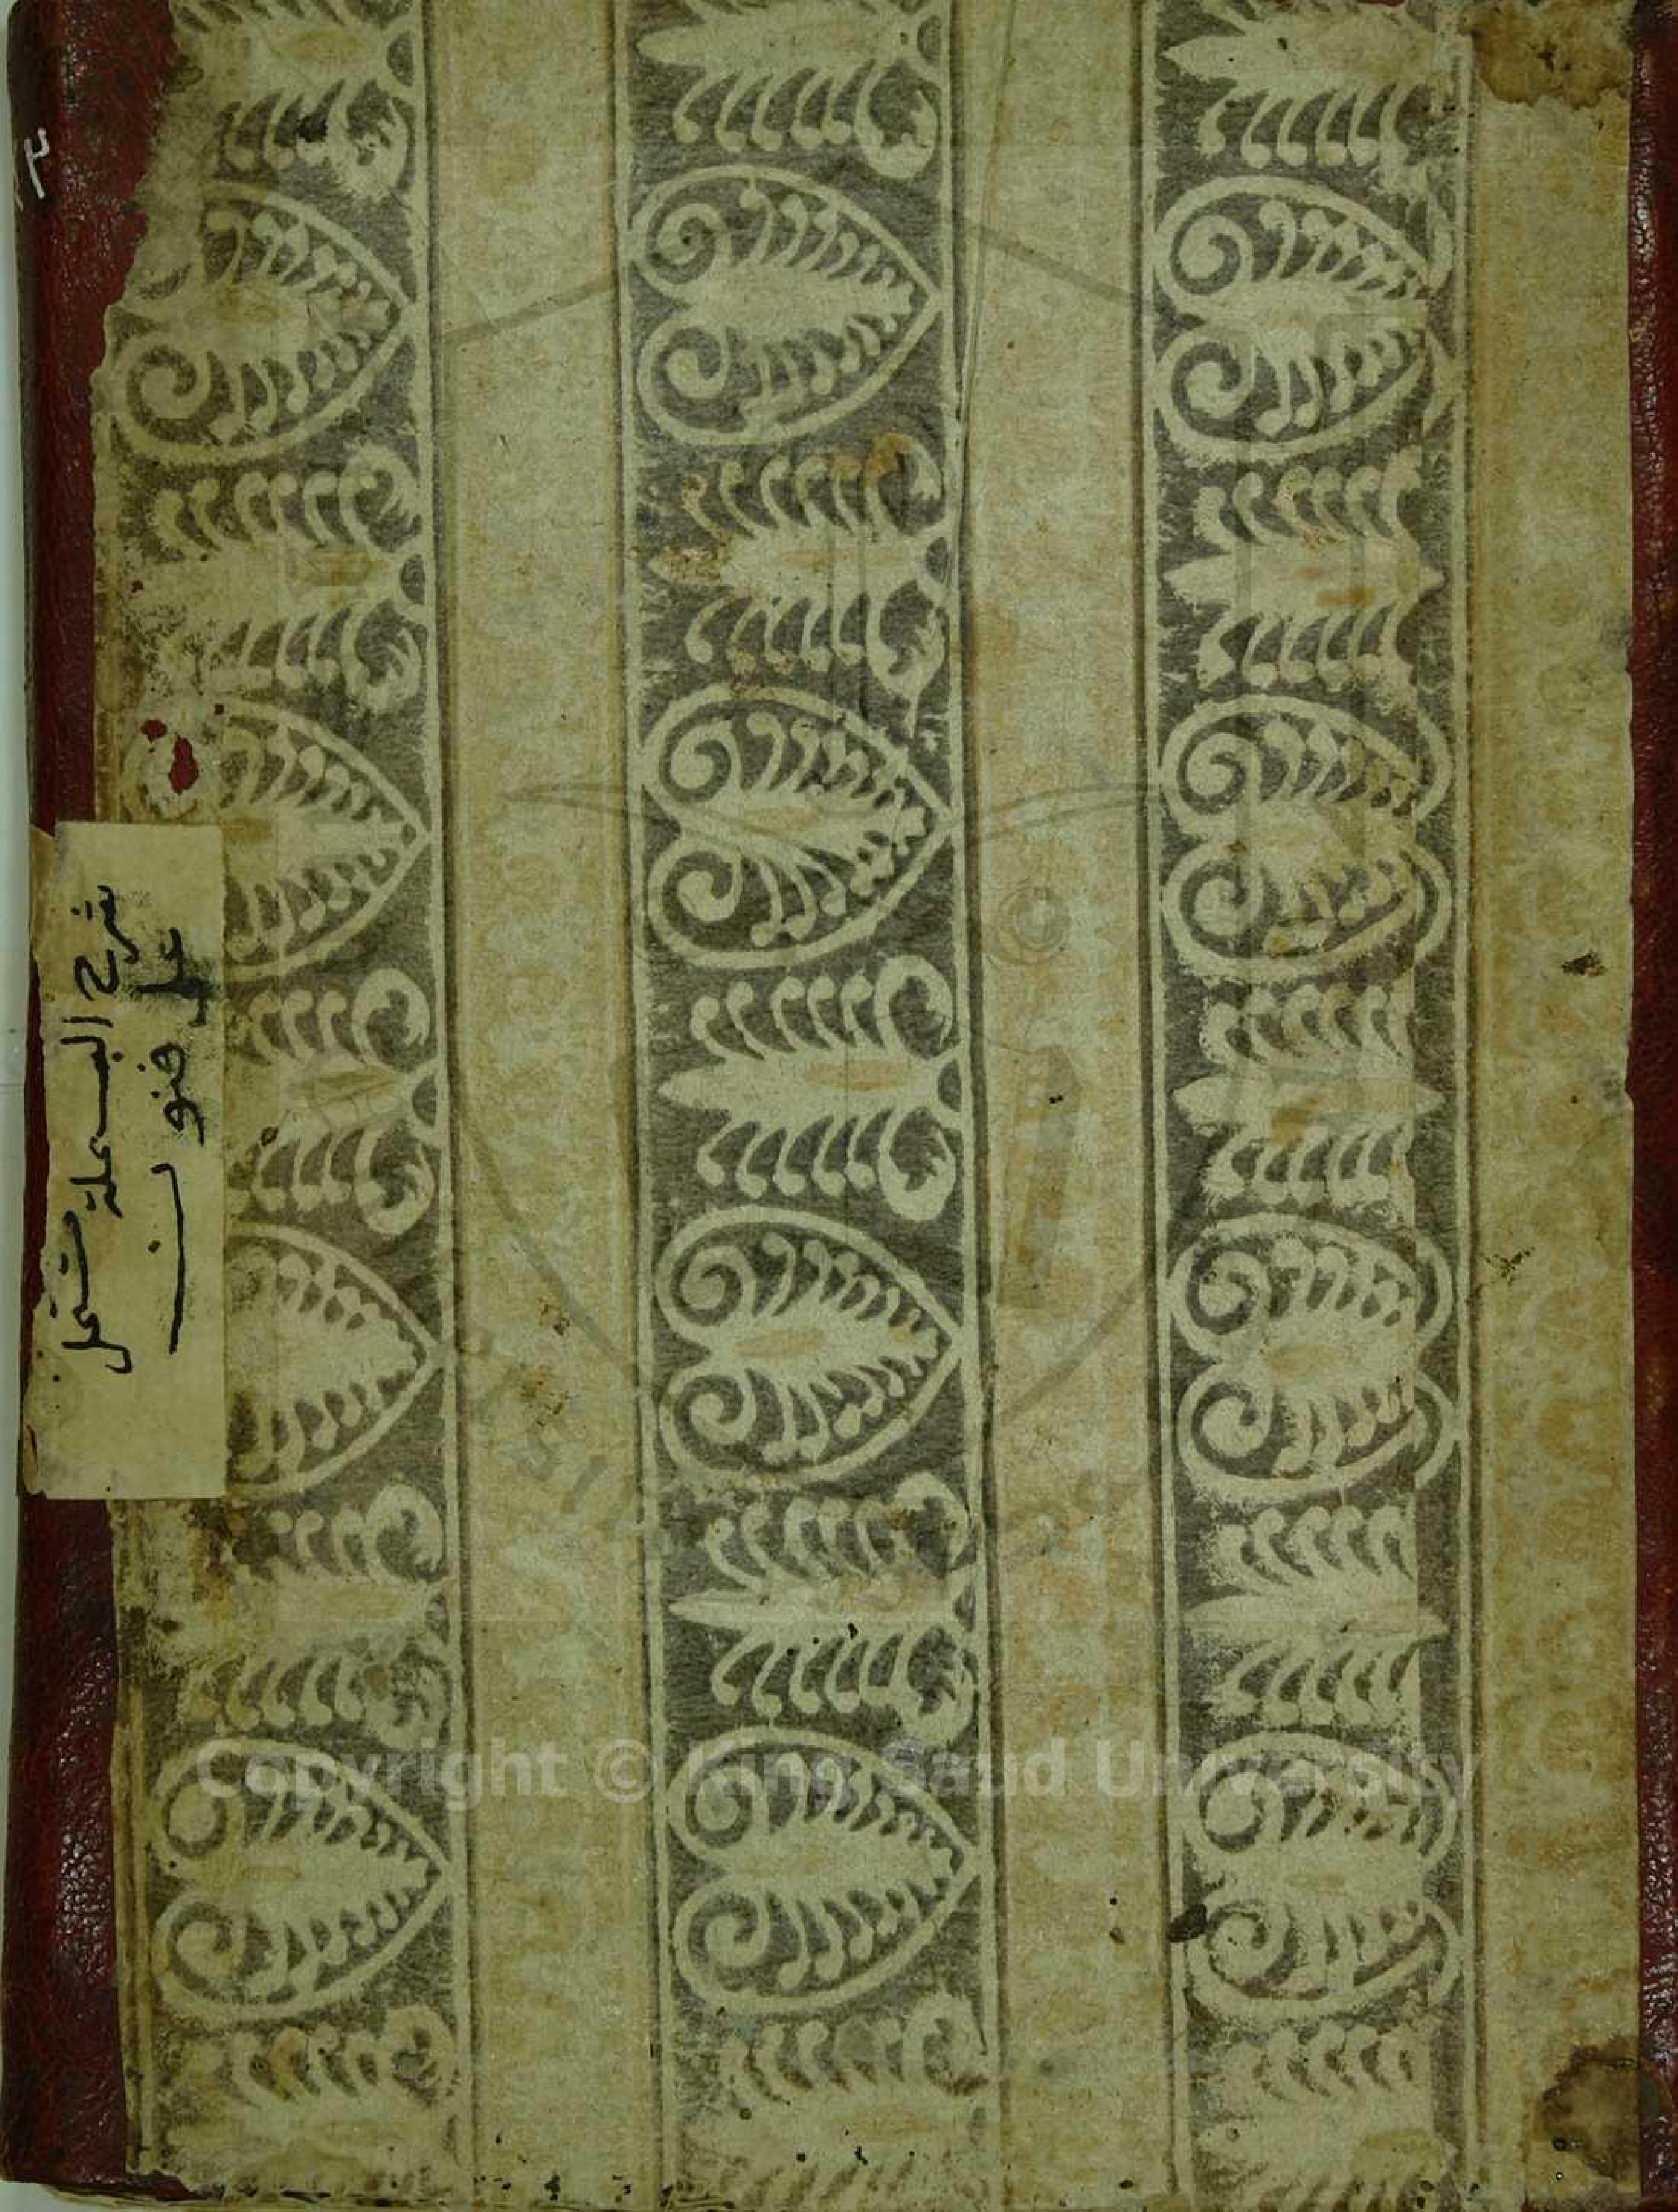 شرح البسملة مشتمل
على فنون
١٣
Copyright © King Saud University